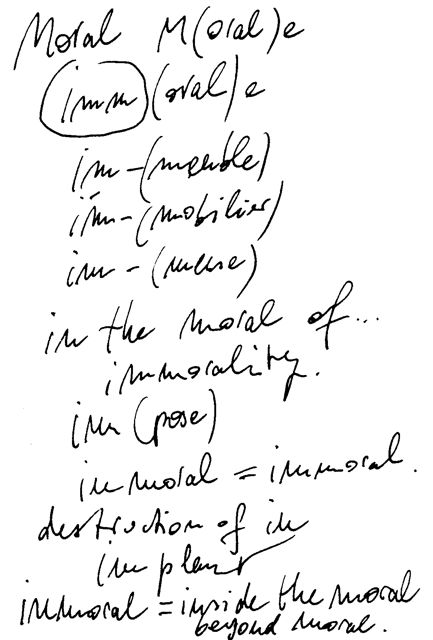 Moral M(oral)e
imm(oral)e
im-(meuble)
im-(mobilier)
im-(mense)
in the moral of...
immorality.
im(pose)
in moral = immoral.
destruction of in
implant
immoral = inside the moral
beyond moral.